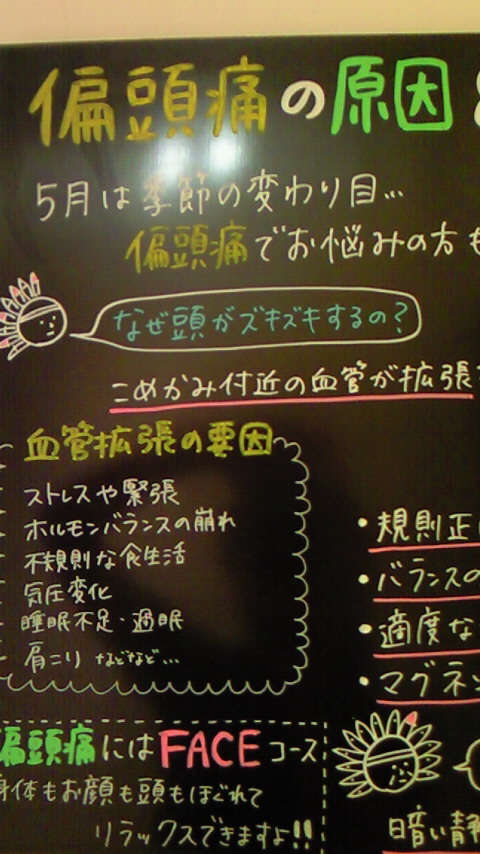 偏頭痛の原因
5月は季節の変わり目…
偏頭痛でお悩みの方も
なぜ頭がズキズキするの?
こめかみ付近の血管が拡張
血管拡張の要因
ストレスや緊張
ホルモンバランスの崩れ
不規則な食生活
気圧変化
睡眠不足・過眠
肩こり などなど…
・規則正
・バランスの
・適度な
・マグネシ
偏頭痛にはFACEコース
身体もお顔も頭もほぐれて
リラックスできますよ!!
暗い静